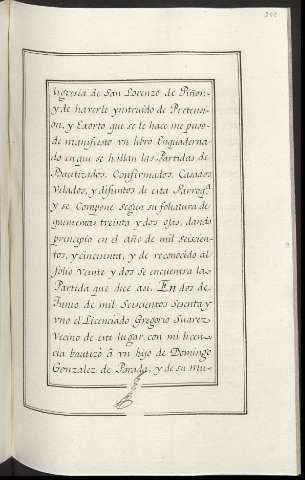 Iglesia de San Lorenzo de Piñor,
y de haverle ynstruido de Pretensi-
on, y Exorto que se le hace me puso
de manifiesto vn libro Enquaderna-
do en que se hallan las Partidas de
Bautizados, Confirmados, Casados
Velados, y difuntos de esta Parroq.ª
y se Compone segun su foliatura de
quinientas treinta y dos ojas, dando
principio en el año de mil seiscien-
tos, y cincuenta, y de reconocido al
folio veinte y dos se encuentra las
Partida que dice asi. En dos de
Junio de mil Seiscientos Sesenta y
vno el Licenciado Gregorio Suarez
Vecino de este lugar con mi licen-
cia bautizò â vn hijo de Domingo
Gonzalez de Parada, y de su mu-